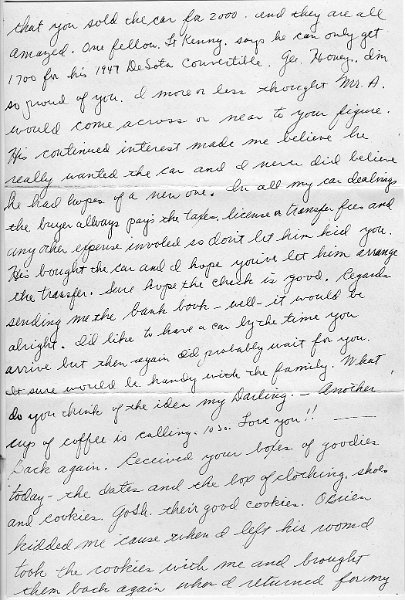 that you sold the car for 2000. and they are all
amazed. One fellow, Lt Kenny, says he can only get
1700 for his 1947 DeSota Convertible. Gee Honey, I'm
so proud of you. I more or less thought Mr. A.
would come across or near to your figure.
His continued interest made me believe he
really wanted the car and I never did believe
he had hopes of a new one. In all my car dealings
the buyer always pays the taxes, license or transfer fees and
any other expense involed so don't let him kid you.
He's bought the car and I hope you've let him arrange
the transfer. Sure hope the check is good. Regards
sending me the bank book - well - it would be
alright. I'd like to have a car by the time you
arrive but then again I'd probably wait for you.
It sure would be handy with the family. What
do you think of the idea my Darling. — Another
cup of coffee is calling. 1030. Love you!! ——
Back again. Received your boxes of goodies
today - the dates and the box of clothing, shoes
and cookies. Gosh, their good cookies. OBrien
kidded me cause when I left his room I
took the cookies with me and brought
them back again when I returned for my